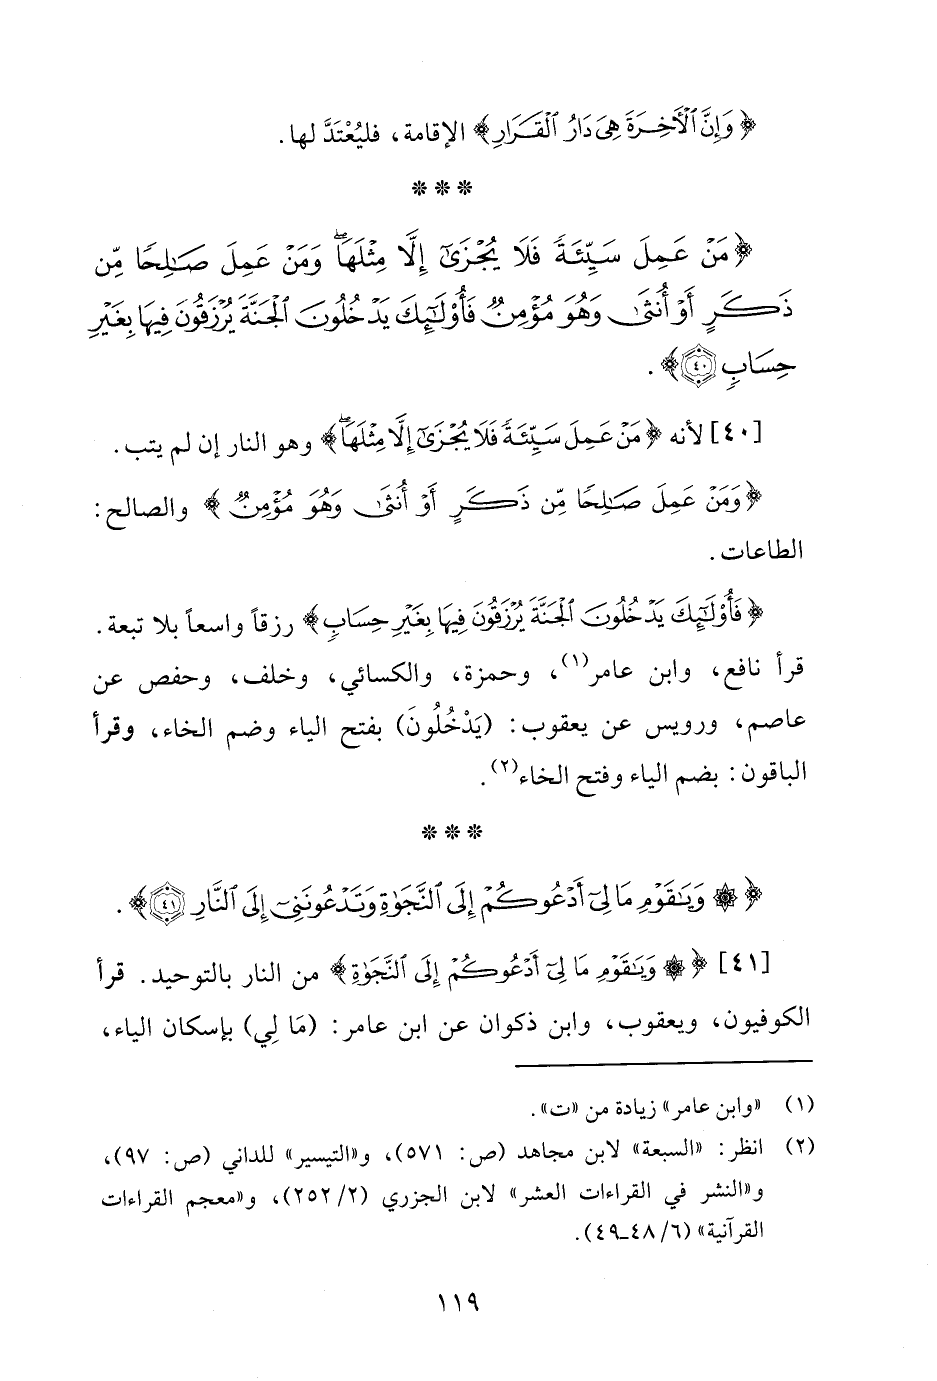 ﴿وَإِنَّ ٱلْأَخِرَةَ هِىَ دَارُ ٱلْقَرَارِ﴾ الإقامة، فليُعْتَدَّ لها.
* * *
﴿مَنْ عَمِلَ سَيِّئَةً فَلَا يُجْزَىٰٓ إِلَّا مِثْلَهَا ۖ وَمَنْ عَمِلَ صَـٰلِحًا مِّن
ذَكَرٍ أَوْ أُنثَىٰ وَهُوَ مُؤْمِنٌ فَأُو۟لَـٰٓئِكَ يَدْخُلُونَ ٱلْجَنَّةَ يُرْزَقُونَ فِيهَا بِغَيْرِ
حِسَابٍ ٤٠﴾.
[٤٠] لأنه ﴿مَنْ عَمِلَ سَيِّئَةً فَلَا يُجْزَىٰٓ إِلَّا مِثْلَهَا ۖ﴾ وهو النار إن لم يتب.
﴿وَمَنْ عَمِلَ صَـٰلِحًا مِّن ذَكَرٍ أَوْ أُنثَىٰ وَهُوَ مُؤْمِنٌ﴾ والصالح:
الطاعات.
﴿فَأُو۟لَـٰٓئِكَ يَدْخُلُونَ ٱلْجَنَّةَ يُرْزَقُونَ فِيهَا بِغَيْرِ حِسَابٍ﴾ رزقاً واسعاً بلا تبعة.
قرأ نافع، وابن عامر(١)، وحمزة، والكسائي، وخلف، وحفص عن
عاصم، ورويس عن يعقوب: (يَدْخُلُونَ) بفتح الياء وضم الخاء، وقرأ
الباقون: بضم الياء وفتح الخاء(٢).
* * *
﴿۞ وَيَـٰقَوْمِ مَا لِىٓ أَدْعُوكُمْ إِلَى ٱلنَّجَوٰةِ وَتَدْعُونَنِىٓ إِلَى ٱلنَّارِ ٤١﴾.
[٤١] ﴿۞ وَيَـٰقَوْمِ مَا لِىٓ أَدْعُوكُمْ إِلَى ٱلنَّجَوٰةِ﴾ من النار بالتوحيد. قرأ
الكوفيون، ويعقوب، وابن ذكوان عن ابن عامر: (مَا لِي) بإسكان الياء،
(١) «وابن عامر» زيادة من «ت».
(٢) انظر: «السبعة» لابن مجاهد (ص: ٥٧١)، و«التيسير» للداني (ص: ٩٧)،
و«النشر في القراءات العشر» لابن الجزري (٢/ ٢٥٢)، و«معجم القراءات
القرآنية» (٦/ ٤٨ـ٤٩).
١١٩